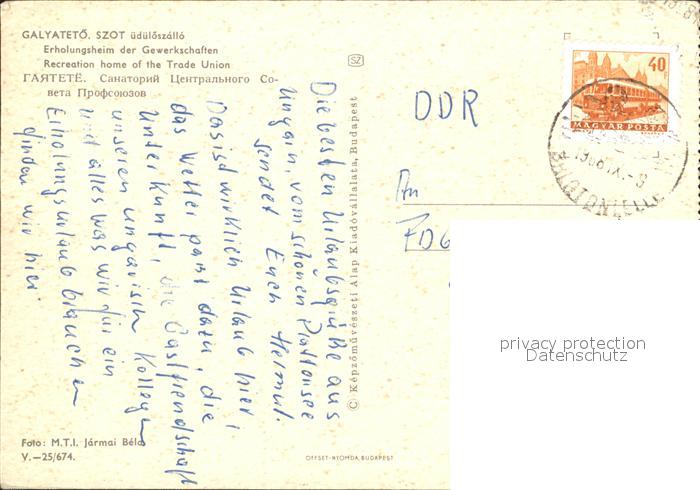 GALYATETŐ. SZOT üdülőszálló
Erholungsheim der Gewerkschaften
Recreation home of the Trade Union
ГАЯТЕТЁ. Санаторий Центрального Со-
вета Профсоюзов
SZ
40
MAGYAR POSTA
DDR
An
FDG
Die besten Urlaubsgrüße aus
Ungarn, vom schönen Plattensee
sendet Euch Helmut.
Das ist wirklich Urlaub hier;
das Wetter passt dazu, die
Unterkunft, die Gastfreundschaft
unseren ungarisch Kollegen
und alles was wir für ein
Erholungsurlaub brauchen
finden wir hier
© Képzőművészeti Alap Kiadóvállalata, Budapest
Foto: M.T.I. Jármai Béla
V.—25/674.
OFFSET-NYOMDA, BUDAPEST
privacy protection
Datenschutz